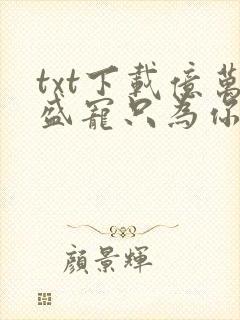 txt下載億萬
盛寵只為你
顏景輝